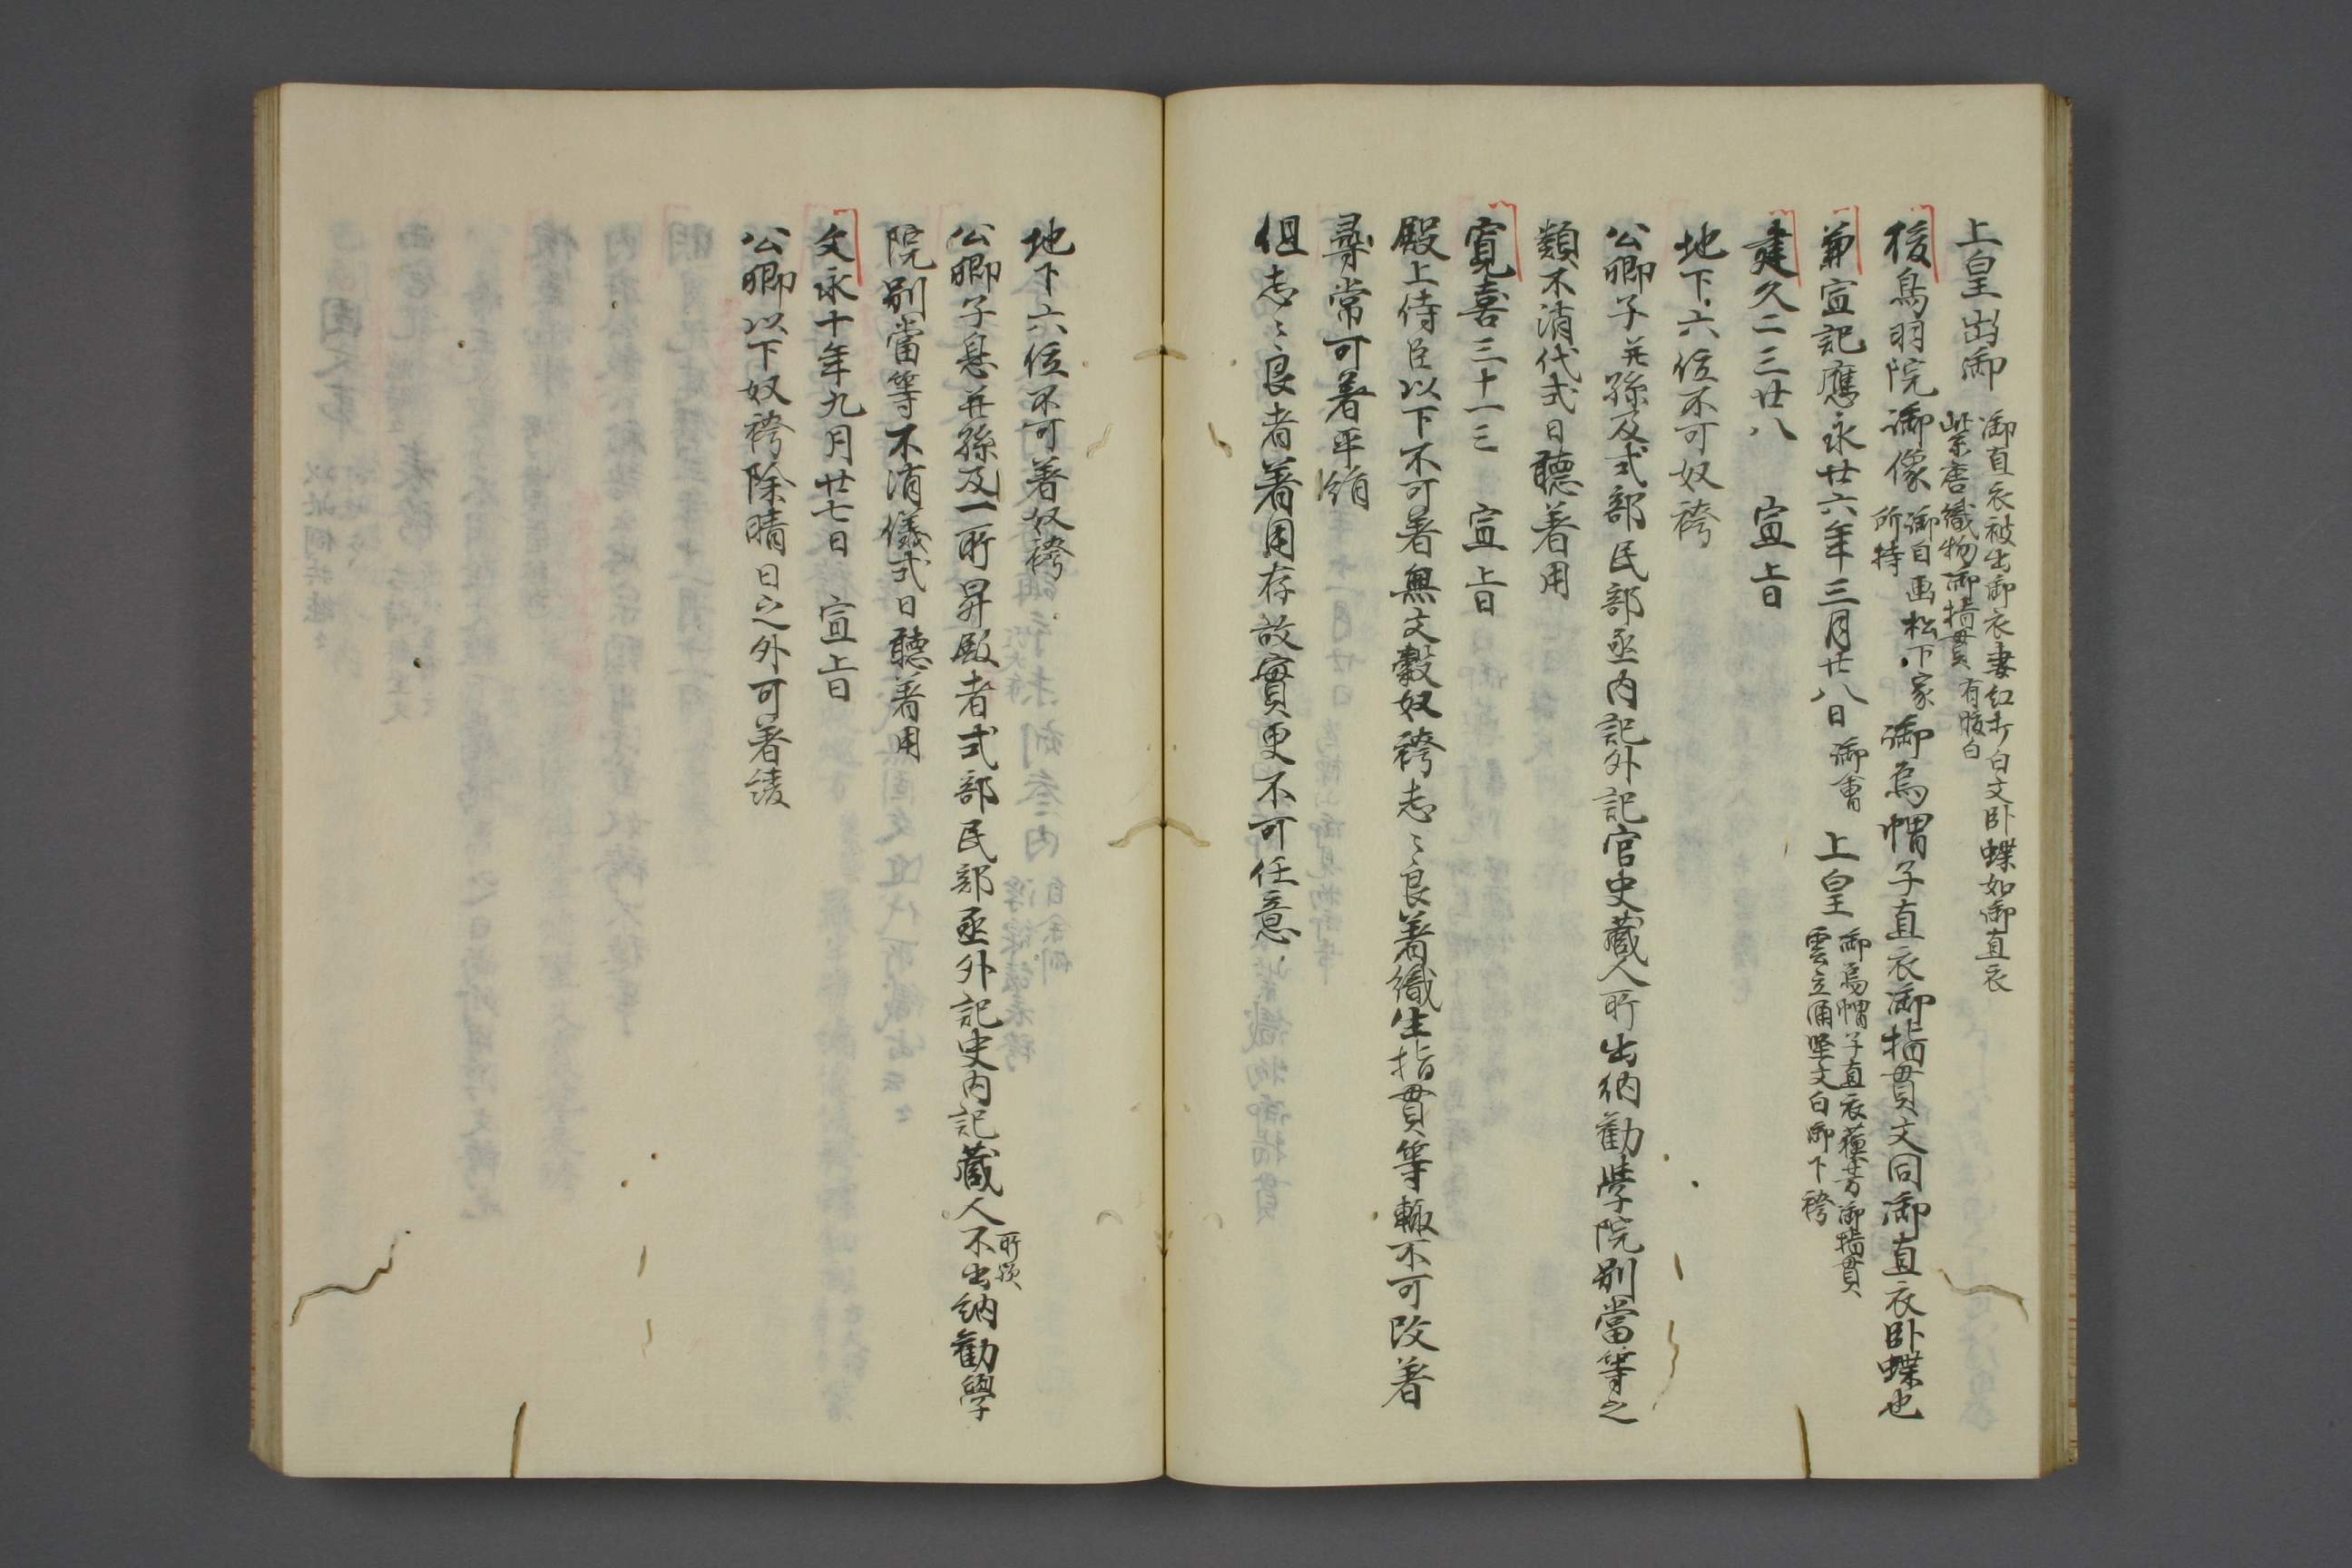 上皇出御 御直衣被出御衣妻紅打白文卧蝶如御直衣
紫唐織物御指貫有腹白
後鳥羽院御像 御自画松下家
所持 御烏帽子直衣御指貫文同御直衣卧蝶也
兼宣記應永廿六年三月廿八日 御會 上皇 御烏帽子直衣薄芳御指貫
雲立涌堅文白御下袴
建久二三廿八 宣旨
地下六位不可奴袴
公卿子并孫及式部民部丞内記外記官史蔵人所出納勧学院別當等之
類不消代式日聴著用
寛喜三十一三 宣旨
殿上侍臣以下不可著無文縠奴袴志々良著織生指貫等輙不可改著
尋常可著平絹
但志々良者著用存故實更不可任意
地下六位不可著奴袴
公卿子息并孫及一所昇殿者式部民部丞外記史内記蔵人不出納勧學
所歟
院別當等不消儀式日聴著用
文永十年九月廿七日 宣旨
公卿以下奴袴除晴日之外可著綾